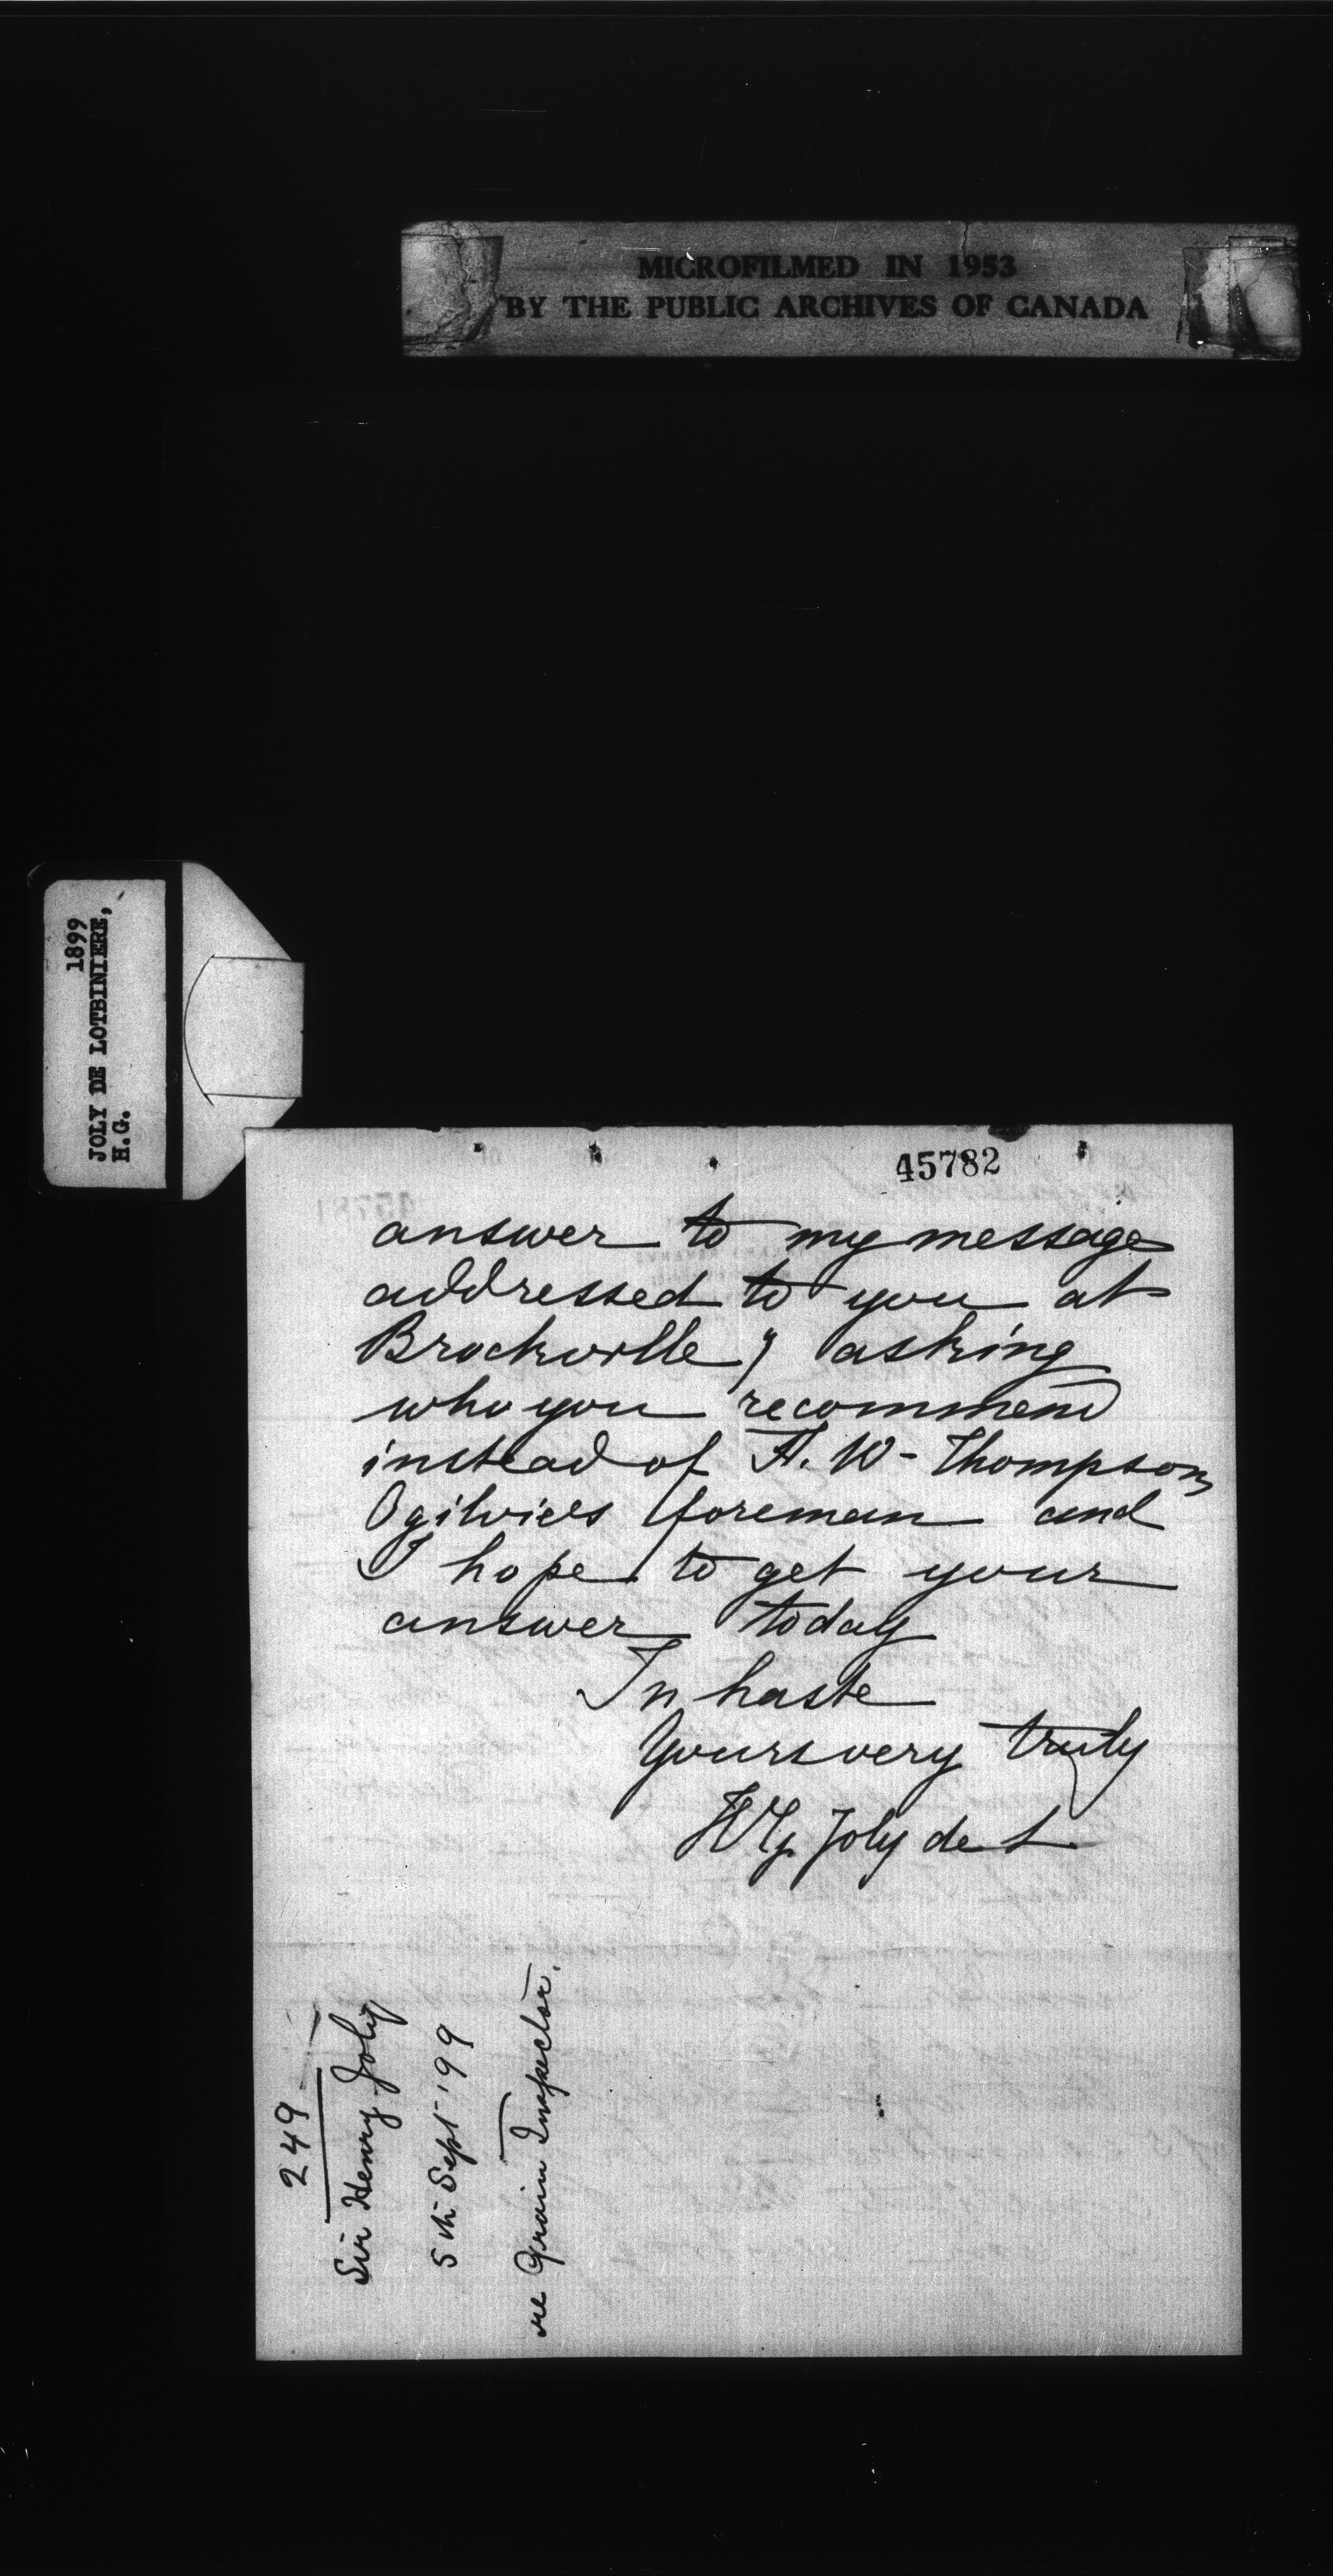 MICROFILMED IN 1953
BY THE PUBLIC ARCHIVES OF CANADA
1899
JOLY DE LOTBINIERE,
H.G.
45782
answer to my message
addressed to you at
Brockville, asking
who you recommend
instead of W. Thompson
Ogilvie's foreman and
I hope to get your
answer today
In haste
Yours very truly
HG Joly de L
249
Sir Henry Joly
5th Sept '99
re Grain Inspector.